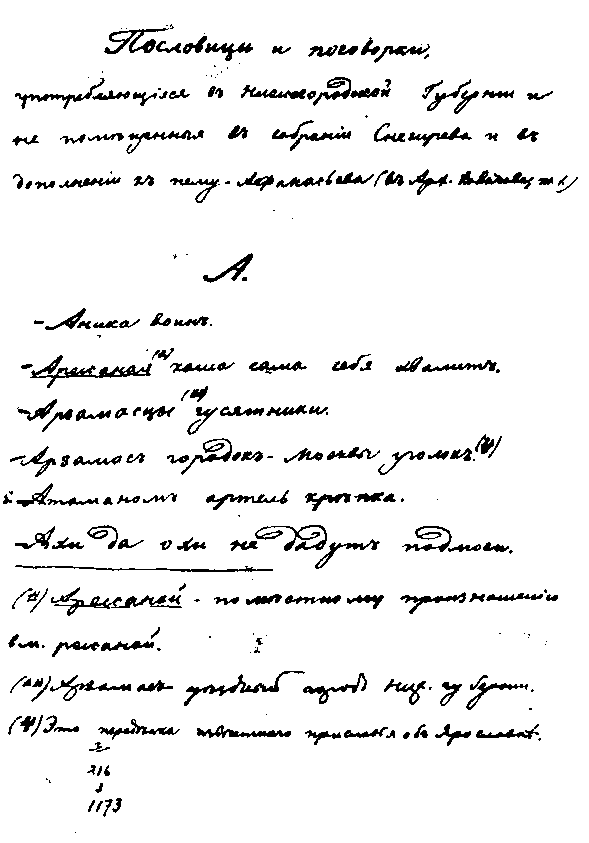 Пословицы и поговорки,
употребляющіяся въ Нижегородской Губерніи и
не помѣщенныя въ собраніи Снегирева и въ
дополненіи къ нему - Афанасьева (въ Арх. Калачова, т.
А.
- Аника воинъ.
- Аржаная (*) каша сама себя хвалитъ.
- Арзамасцы (**) гусятники.
- Арзамасъ городокъ - Москвы уголокъ.
- Атаманомъ артель крѣпка.
- Ахи да охи не дадутъ подмоги.
(*) Аржаной - по мѣстному произношенію
вм. ржаной.
(**) Арзамасъ уѣздный городъ Ниж. губерніи.
Это передѣлка извѣстнаго присловья объ Ярославлѣ.
216
1173